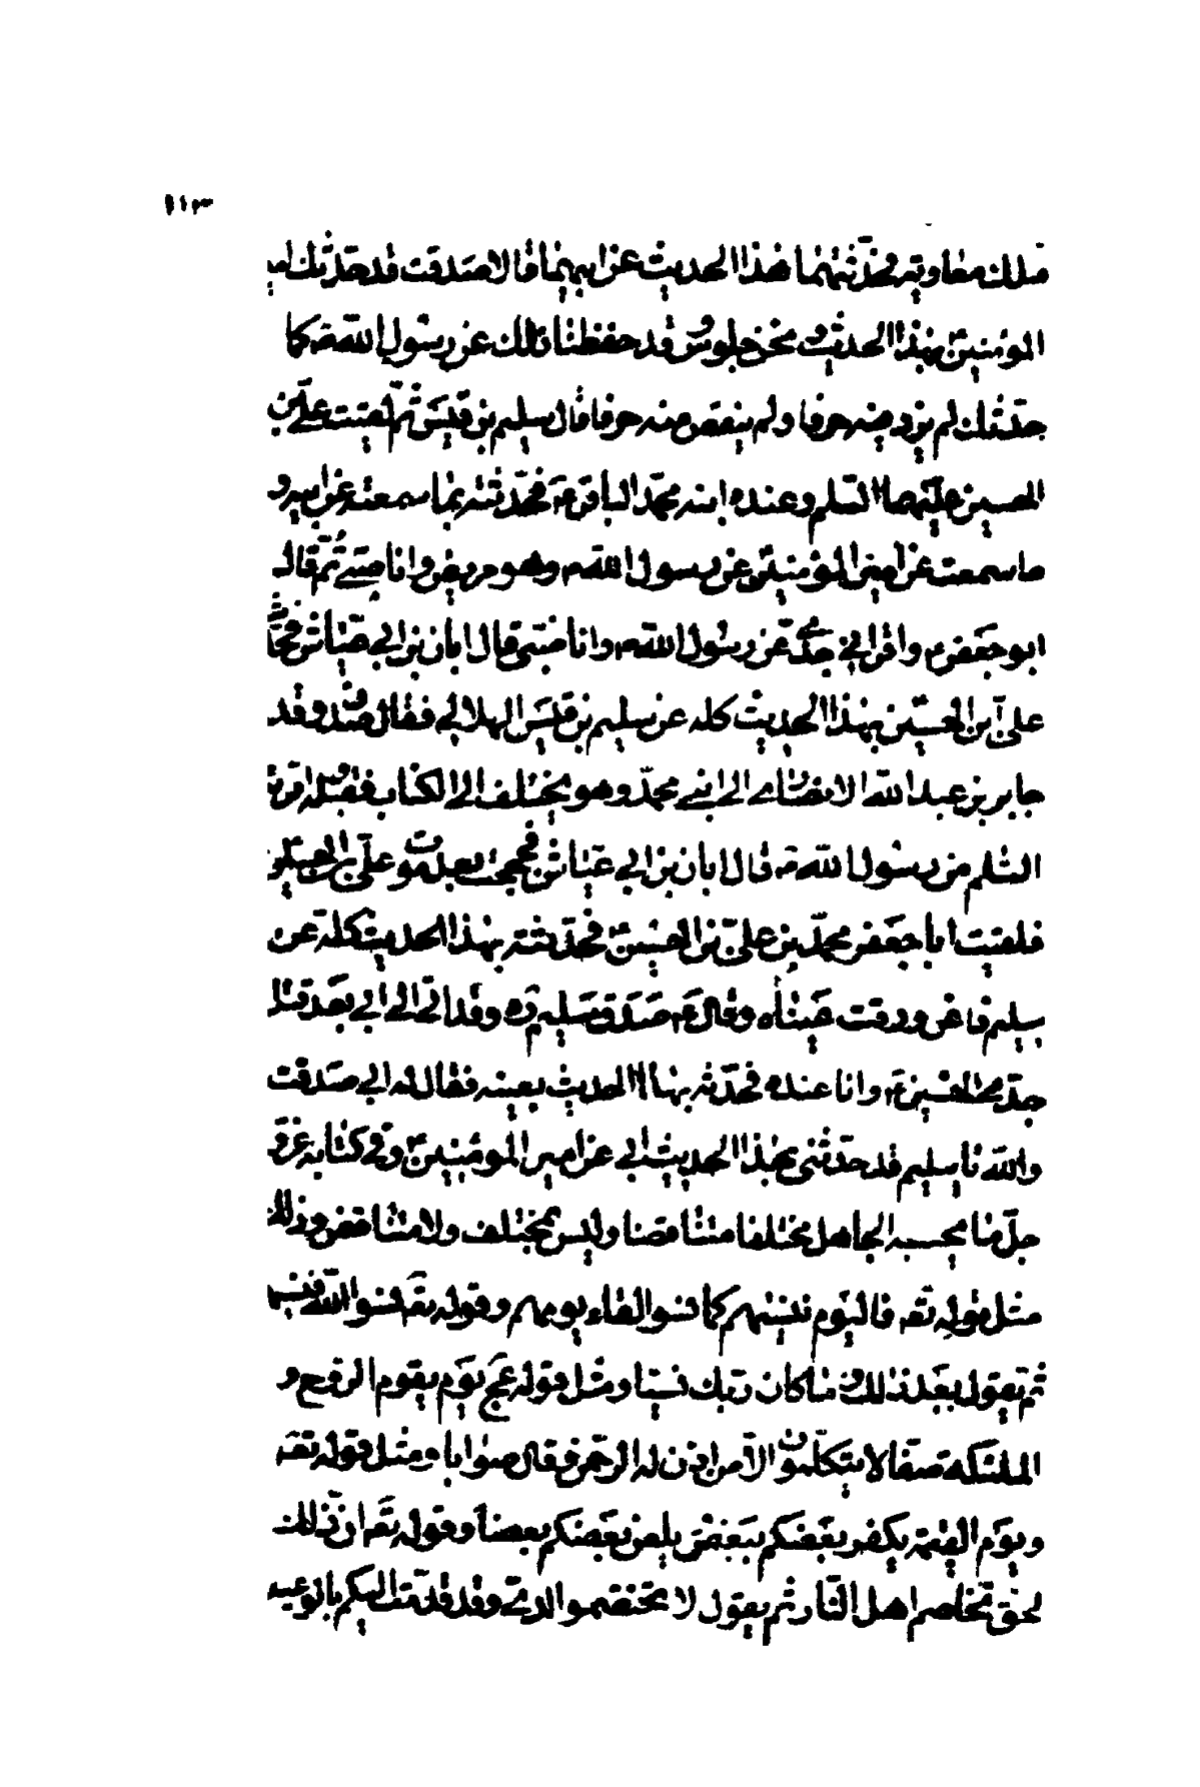 ١١٣
ملك معاوية فحدّثتهما بهذا الحديث عن ابيهما قالا صدقت قد حدّثك امير
المؤمنين بهذا الحديث ونحن جلوس وقد حفظنا ذلك عن رسول الله ص كما
حدّثك لم يزد فيه حرفا ولم ينقص منه حرفا قال سليم بن قيس ثم لقيت علي بن
الحسين عليهما السلم وعنده ابنه محمّد الباقر ع فحدّثته بما سمعته عن ابيه و
ما سمعت عن امير المؤمنين عن رسول الله ص وهو مريض وانا صبي ثم قال
ابو جعفر ع واقراني جدّي عن رسول الله ص وانا صبي قال ابان بن ابي عيّاش فحدّثت
علي بن الحسين بهذا الحديث كله عن سليم بن قيس الهلالي فقال صدق وقد
جابر بن عبد الله الانصاري الى ابني محمد وهو يختلف الى الكتاب فقبّله واقرئه
السّلم من رسول الله ص قال ابان بن ابي عيّاش فحججت بعد موت علي بن الحسين
فلقيت ابا جعفر محمّد بن علي بن الحسين فحدّثته بهذا الحديث كله عن
سليم فاغرورقت عيناه وقال ع صدق سليم ره وقد اتى الى ابي بعد قتل
جدّي الحسين ع وانا عنده فحدّثه بهذا الحديث بعينه فقال له ابي صدقت
والله يا سليم قد حدّثني بهذا الحديث ابي عن امير المؤمنين وفي كتابه عزّ و
جلّ ما يحسبه الجاهل مختلفا متناقضا وليس بمختلف ولا متناقض وذلك
مثل قوله تعه فاليوم ننسيهم كما نسوا لقاء يومهم وقوله تعه نسوا الله فنسيهم
ثم يقول بعد ذلك وما كان ربك نسيّا ومثل قوله عج يوم يقوم الروح و
الملئكة صفّا لا يتكلّمون الّا من اذن له الرّحمن وقال صوابا ومثل قوله تعه
ويوم القيمة يكفر بعضكم ببعض ويلعن بعضكم بعضا وقوله تعه ان ذلك
لحق تخاصم اهل النّار ثم يقول لا تختصموا لديّ وقد قدّمت اليكم بالوعيد